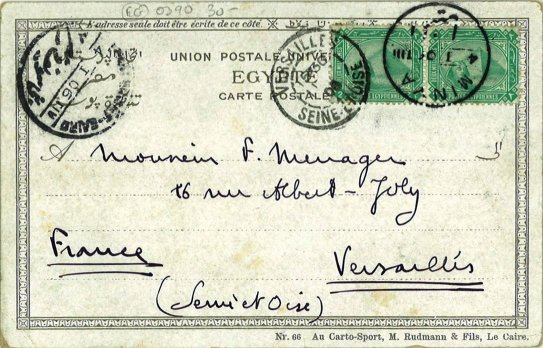 (EG) 0290 30-
L'adresse seule doit être écrite de ce côté.
UNION POSTALE UNIVER
EGYPTE
CARTE POSTALE
VERSAILLES
SEINE-ET-OISE
MINIA
A Monsieur F. Menager
16 rue Albert-Joly
France
Versailles
(Seine et Oise)
Nr. 66 Au Carto-Sport, M. Rudmann & Fils, Le Caire.